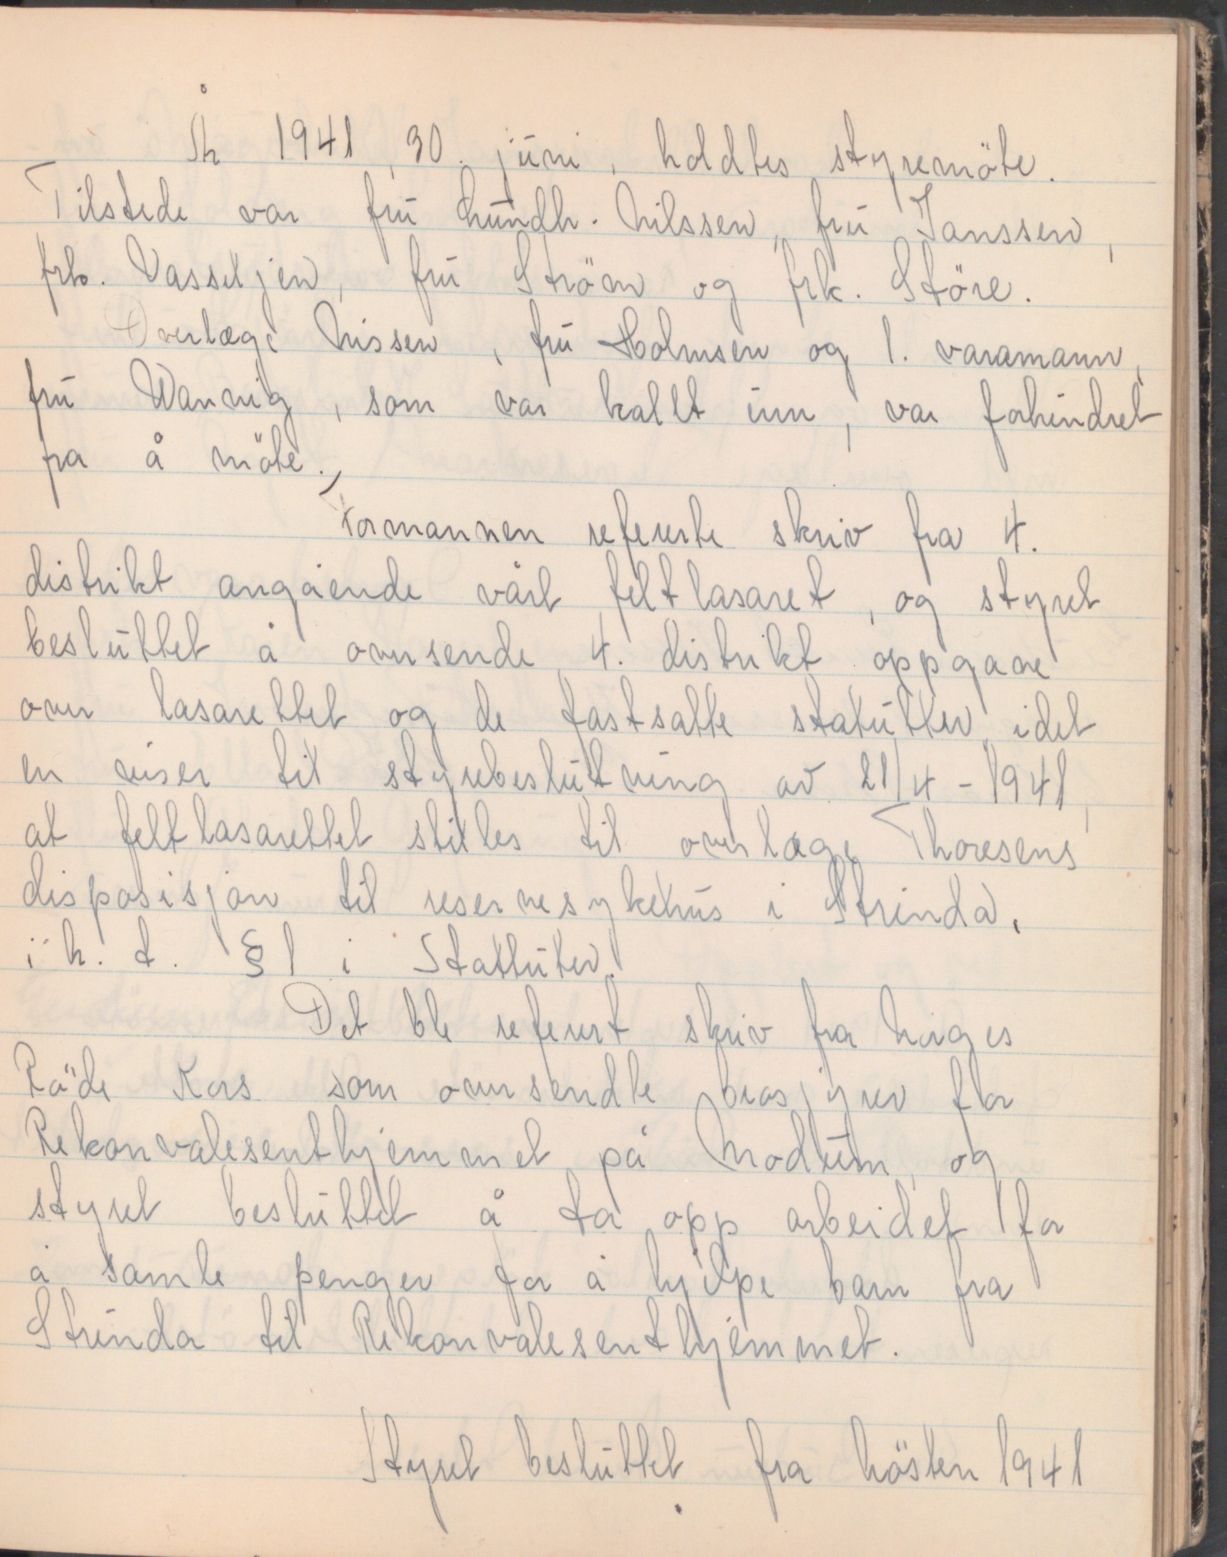 År 1941, 30. juni, holdtes styremöte.
Tilstede var frú Lúndh. Nilssen, frú Janssen,
frk. Vasseljen, frú Ström og frk. Störe.
Overlæge Nissen, frú Holmsen og 1. varamann,
frú Wanvig, som var kallt inn, var forhindret
fra å möte.
Formannen refererte skriv fra 4.
distrikt angående vårt feltlasaret, og styret
beslúttet å oversende 4. distrikt oppgave
over lasarettet og de fastsatte statútter, idet
en viser til styrebeslútning av 21/4 - 1941,
at feltlasarettet stilles til overlæge Thoresens
disposisjon til reservesykehús i Strinda,
i h. t. § 1 i Stattúter.
Det ble referert skriv fra Norges
Röde Kors som oversendte brosjyrer for
Rekonvalesenthjemmet på Modúm, og
styret beslúttet å ta opp arbeidet for
å samle penger for å hjelpe barn fra
Strinda til Rekonvalesenthjemmet.
Styret beslúttet fra hösten 1941